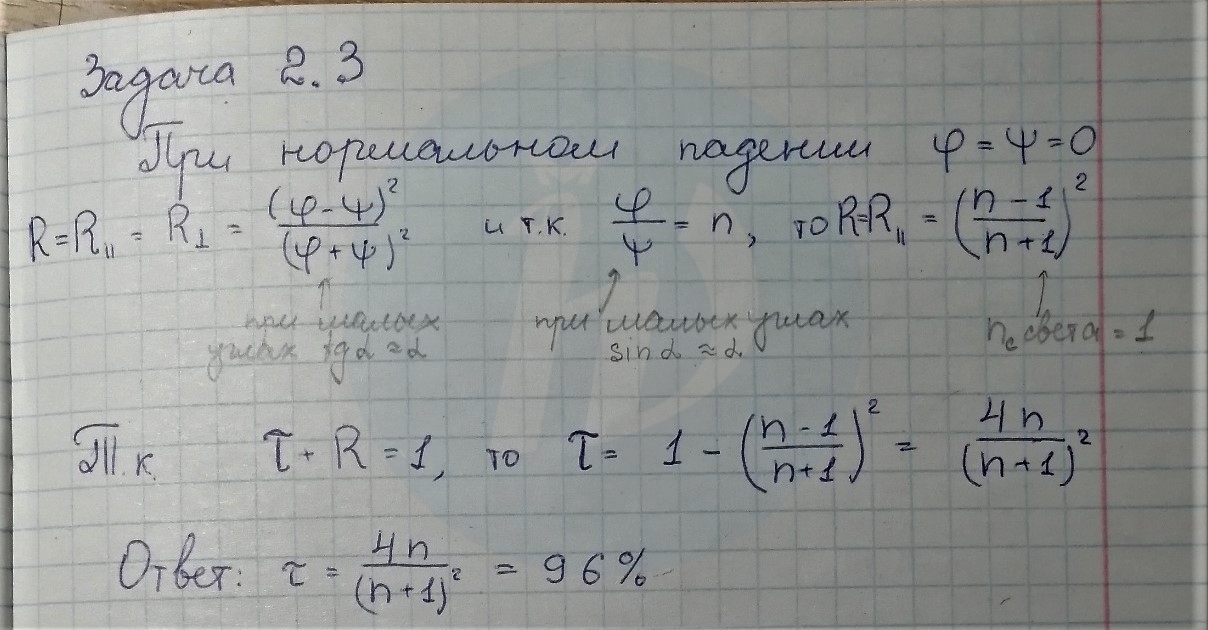 Задача 2.3
При нормальном падении φ = ψ = 0
R = R_|| = R_⊥ = (φ - ψ)² / (φ + ψ)² и т.к. φ/ψ = n, то R=R_|| = ((n - 1)/(n + 1))²
при малых углах tg α ≈ α
при малых углах sin α ≈ α
n_с света = 1
Т.к. τ + R = 1, то τ = 1 - ((n - 1)/(n + 1))² = 4n / (n + 1)²
Ответ: τ = 4n / (n + 1)² = 96%